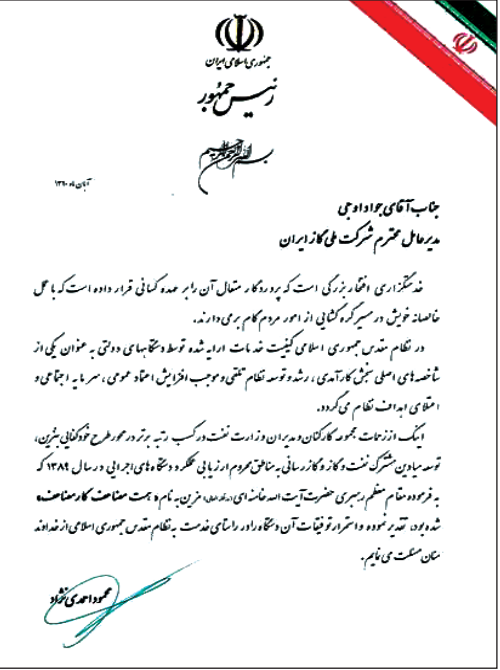 جمهوری اسلامی ایران
رئیس جمهور
بسم الله الرحمن الرحیم
آبان ماه ۱۳۹۰
جناب آقای جواد اوجی
مدیرعامل محترم شرکت ملی گاز ایران
خدمتگزاری افتخار بزرگی است که پروردگار متعال آن را بر عهده کسانی قرار داده است که با عمل
خالصانه خویش در مسیر گره گشایی از امور مردم گام برمی دارند.
در نظام مقدس جمهوری اسلامی کیفیت خدمات ارایه شده توسط دستگاههای دولتی به عنوان یکی از
شاخصه های اصلی سنجش کارآمدی، رشد و توسعه نظام تلقی و موجب افزایش اعتماد عمومی، سرمایه اجتماعی و
اعتلای اهداف نظام می گردد.
اینک از زحمات مجموعه کارکنان و مدیران وزارت نفت در کسب رتبه برتر در محور طرح خودکفایی بنزین،
توسعه میادین مشترک نفت و گاز و گازرسانی به مناطق محروم ارزیابی عملکرد دستگاه های اجرایی در سال ۱۳۸۹ که
به فرموده مقام معظم رهبری حضرت آیت الله خامنه ای (مدظله العالی) مزین به نام «همت مضاعف کار مضاعف»
شده بود، تقدیر نموده و استمرار توفیقات آن دستگاه را در راستای خدمت به نظام مقدس جمهوری اسلامی از خداوند
منان مسئلت می نمایم.
محمود احمدی نژاد